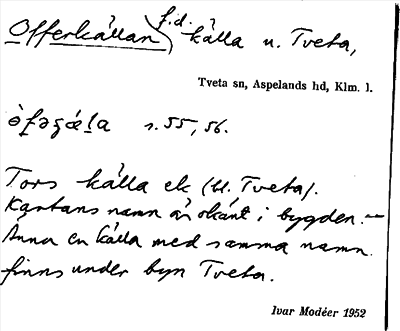 Offerkällan, f.d. källa u. Tveta,
Tveta sn, Aspelands hd, Klm. l.
s. 55, 56.
Tors källa ek (U. Tveta).
Kartans namn är okänt i bygden. —
Ännu en källa med samma namn
finns under byn Tveta.
Ivar Modéer 1952